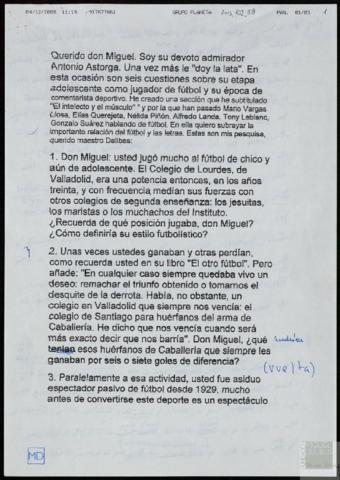 04/12/2008 11:19 917677061 GRUPO PLANETA PÁG. 01/01 1
Querido don Miguel. Soy su devoto admirador
Antonio Astorga. Una vez más le "doy la lata". En
esta ocasión son seis cuestiones sobre su etapa
adolescente como jugador de fútbol y su época de
comentarista deportivo. He creado una sección que he subtitulado
"El intelecto y el músculo" " y por la que han pasado Mario Vargas
Llosa, Elías Querejeta, Nélida Piñón, Alfredo Landa, Tony Leblanc,
Gonzalo Suárez hablando de fútbol. En ella quiero subrayar la
importante relación del fútbol y las letras. Estas son mis pesquisa,
querido maestro Delibes:
1. Don Miguel: usted jugó mucho al fútbol de chico y
aún de adolescente. El Colegio de Lourdes, de
Valladolid, era una potencia entonces, en los años
treinta, y con frecuencia medían sus fuerzas con
otros colegios de segunda enseñanza: los jesuitas,
los maristas o los muchachos del Instituto.
¿Recuerda de qué posición jugaba, don Miguel?
¿Cómo definiría su estilo futbolístico?
2. Unas veces ustedes ganaban y otras perdían,
como recuerda usted en su libro "El otro fútbol". Pero
añade: "En cualquier caso siempre quedaba vivo un
deseo: remachar el triunfo obtenido o tomarnos el
desquite de la derrota. Había, no obstante, un
colegio en Valladolid que siempre nos vencía: el
colegio de Santiago para huérfanos del arma de
Caballería. He dicho que nos vencía cuando será
más exacto decir que nos barría". Don Miguel, ¿qué
tenían esos huérfanos de Caballería que siempre les
ganaban por seis o siete goles de diferencia?
(vuelta)
3. Paralelamente a esa actividad, usted fue asiduo
espectador pasivo de fútbol desde 1929, mucho
antes de convertirse este deporte es un espectáculo
MD